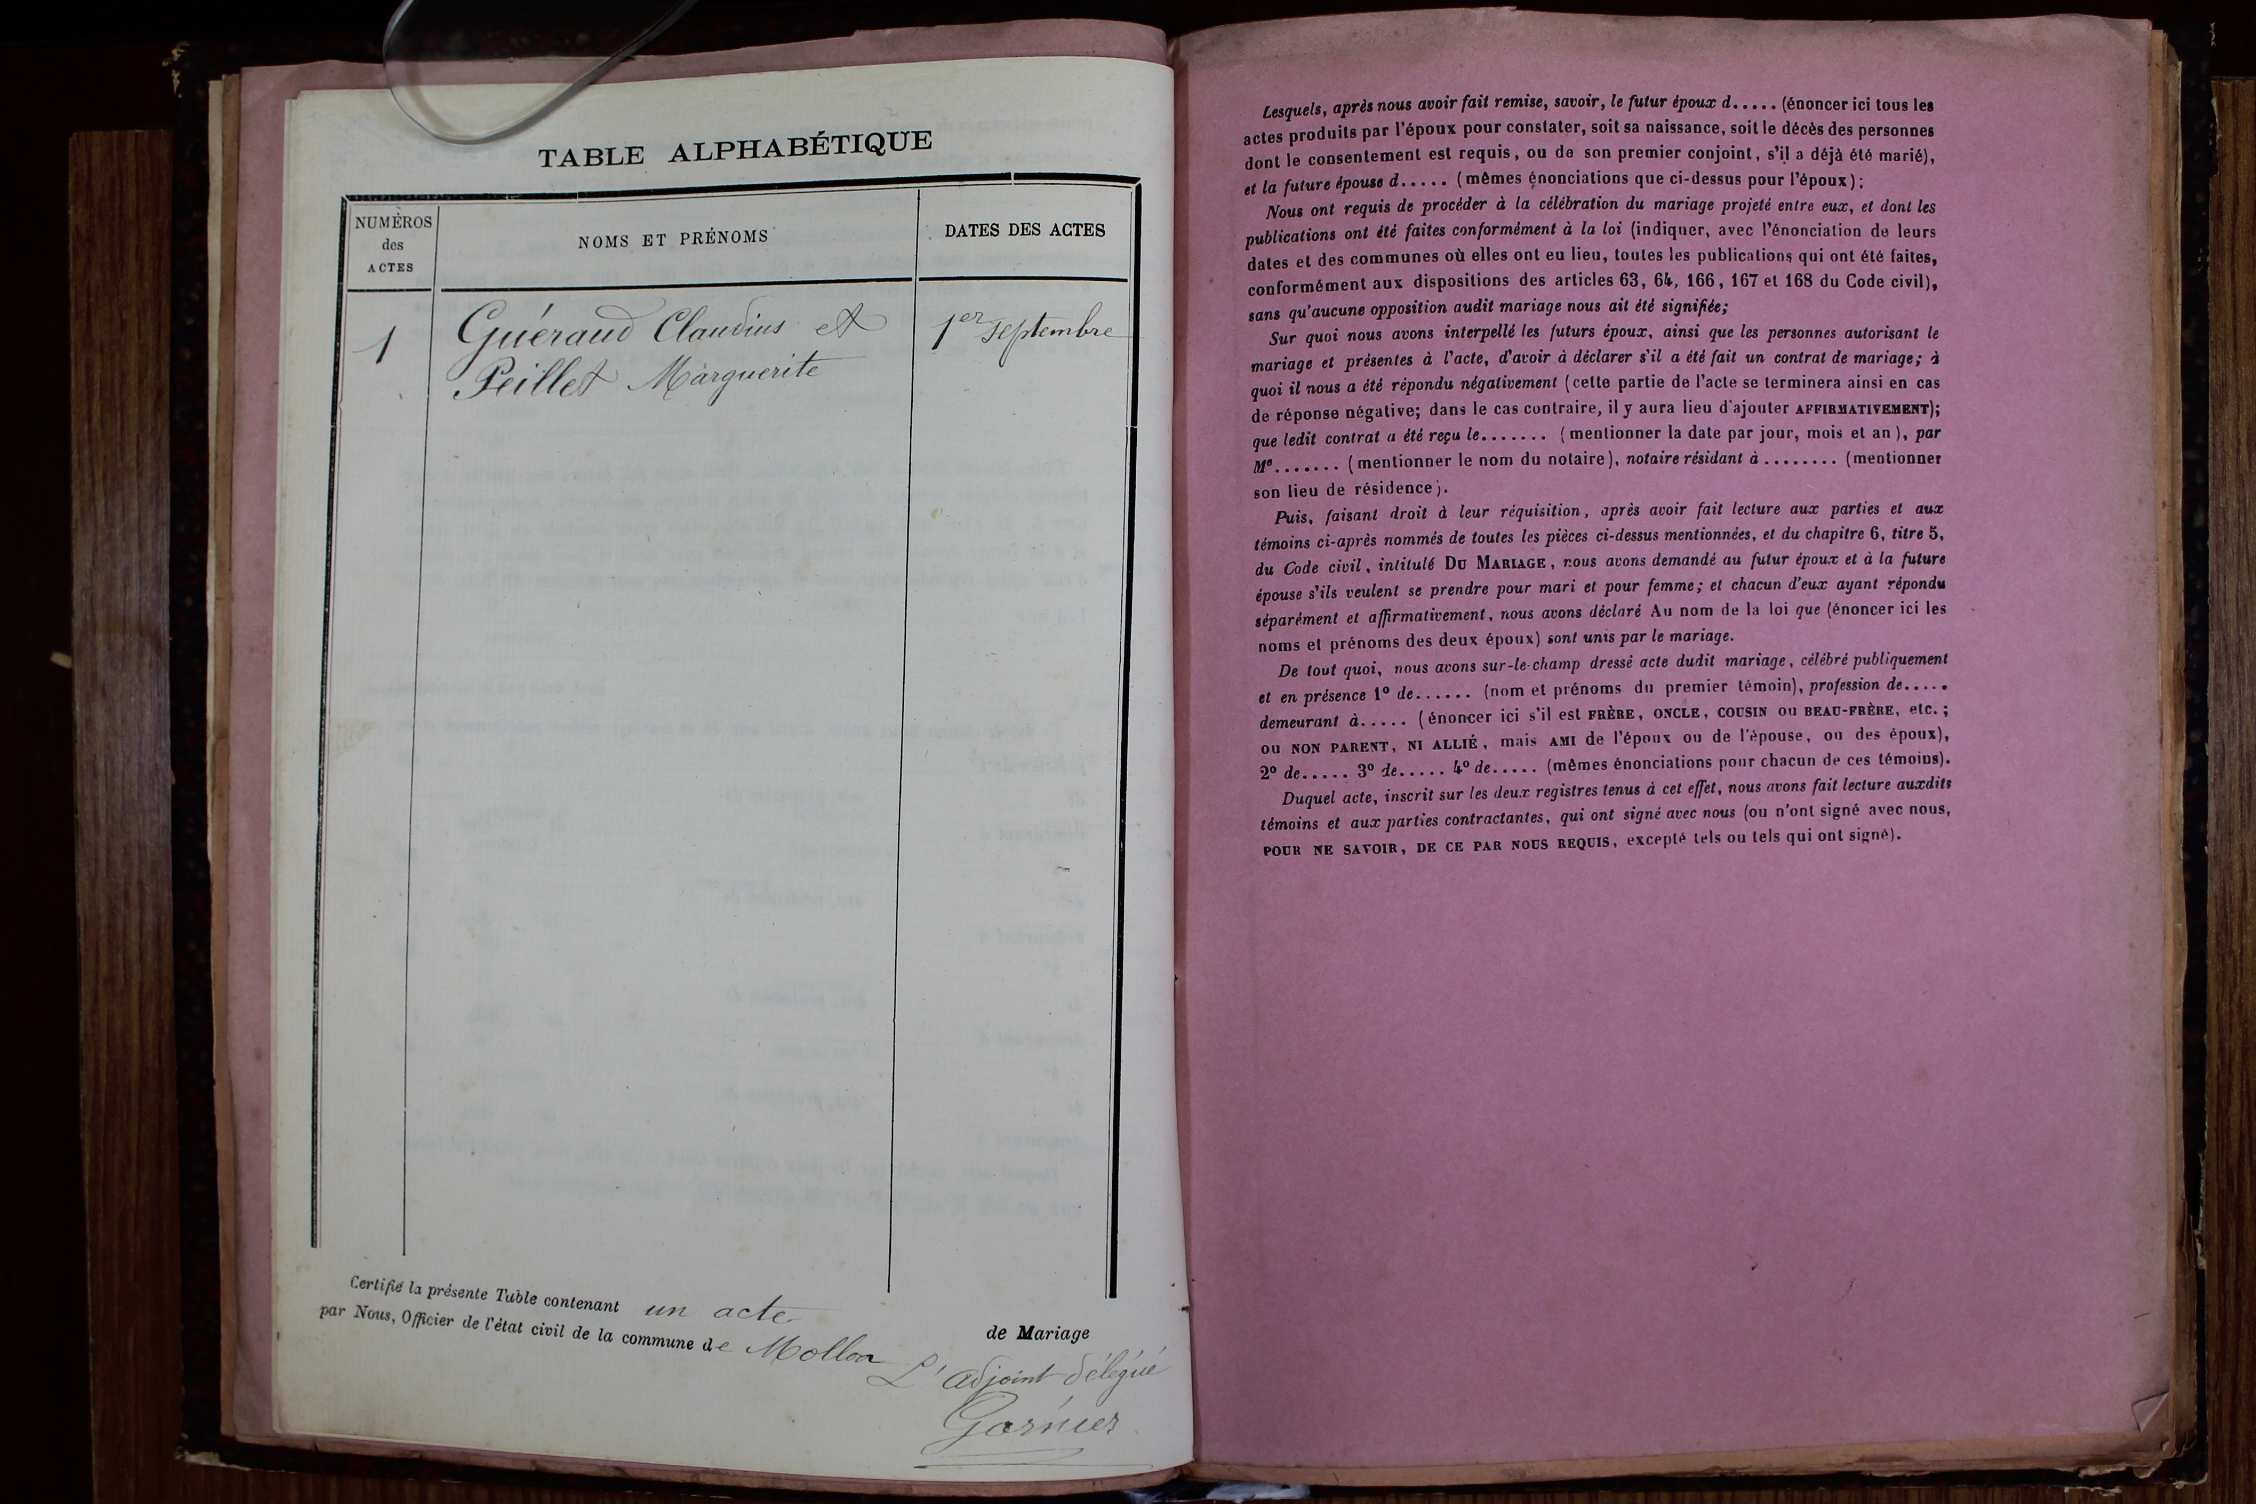 TABLE ALPHABÉTIQUE
NUMÉROS
des
ACTES
NOMS ET PRÉNOMS
DATES DES ACTES
1
Guéraud Claudius et
1er septembre
Peillet Marguerite
Certifié la présente Table contenant un acte
de Mariage
par Nous, Officier de l'état civil de la commune de Mollon
L'adjoint délégué
Garnier
Lesquels, après nous avoir fait remise, savoir, le futur époux d..... (énoncer ici tous les
actes produits par l'époux pour constater, soit sa naissance, soit le décès des personnes
dont le consentement est requis, ou de son premier conjoint, s'il a déjà été marié),
et la future épouse d..... (mêmes énonciations que ci-dessus pour l'époux);
Nous ont requis de procéder à la célébration du mariage projeté entre eux, et dont les
publications ont été faites conformément à la loi (indiquer, avec l'énonciation de leurs
dates et des communes où elles ont eu lieu, toutes les publications qui ont été faites,
conformément aux dispositions des articles 63, 64, 166, 167 et 168 du Code civil),
sans qu'aucune opposition audit mariage nous ait été signifiée;
Sur quoi nous avons interpellé les futurs époux, ainsi que les personnes autorisant le
mariage et présentes à l'acte, d'avoir à déclarer s'il a été fait un contrat de mariage; à
quoi il nous a été répondu négativement (cette partie de l'acte se terminera ainsi en cas
de réponse négative; dans le cas contraire, il y aura lieu d'ajouter AFFIRMATIVEMENT);
que ledit contrat a été reçu le....... (mentionner la date par jour, mois et an), par
Me....... (mentionner le nom du notaire), notaire résidant à........ (mentionner
son lieu de résidence).
Puis, faisant droit à leur réquisition, après avoir fait lecture aux parties et aux
témoins ci-après nommés de toutes les pièces ci-dessus mentionnées, et du chapitre 6, titre 5,
du Code civil, intitulé DU MARIAGE, nous avons demandé au futur époux et à la future
épouse s'ils veulent se prendre pour mari et pour femme; et chacun d'eux ayant répondu
séparément et affirmativement, nous avons déclaré Au nom de la loi que (énoncer ici les
noms et prénoms des deux époux) sont unis par le mariage.
De tout quoi, nous avons sur-le-champ dressé acte dudit mariage, célébré publiquement
et en présence 1º de...... (nom et prénoms du premier témoin), profession de.....
demeurant à..... (énoncer ici s'il est FRÈRE, ONCLE, COUSIN ou BEAU-FRÈRE, etc.;
ou NON PARENT, NI ALLIÉ, mais AMI de l'époux ou de l'épouse, ou des époux),
2º de..... 3º de..... 4º de..... (mêmes énonciations pour chacun de ces témoins).
Duquel acte, inscrit sur les deux registres tenus à cet effet, nous avons fait lecture auxdits
témoins et aux parties contractantes, qui ont signé avec nous (ou n'ont signé avec nous,
POUR NE SAVOIR, DE CE PAR NOUS REQUIS, excepté tels ou tels qui ont signé).